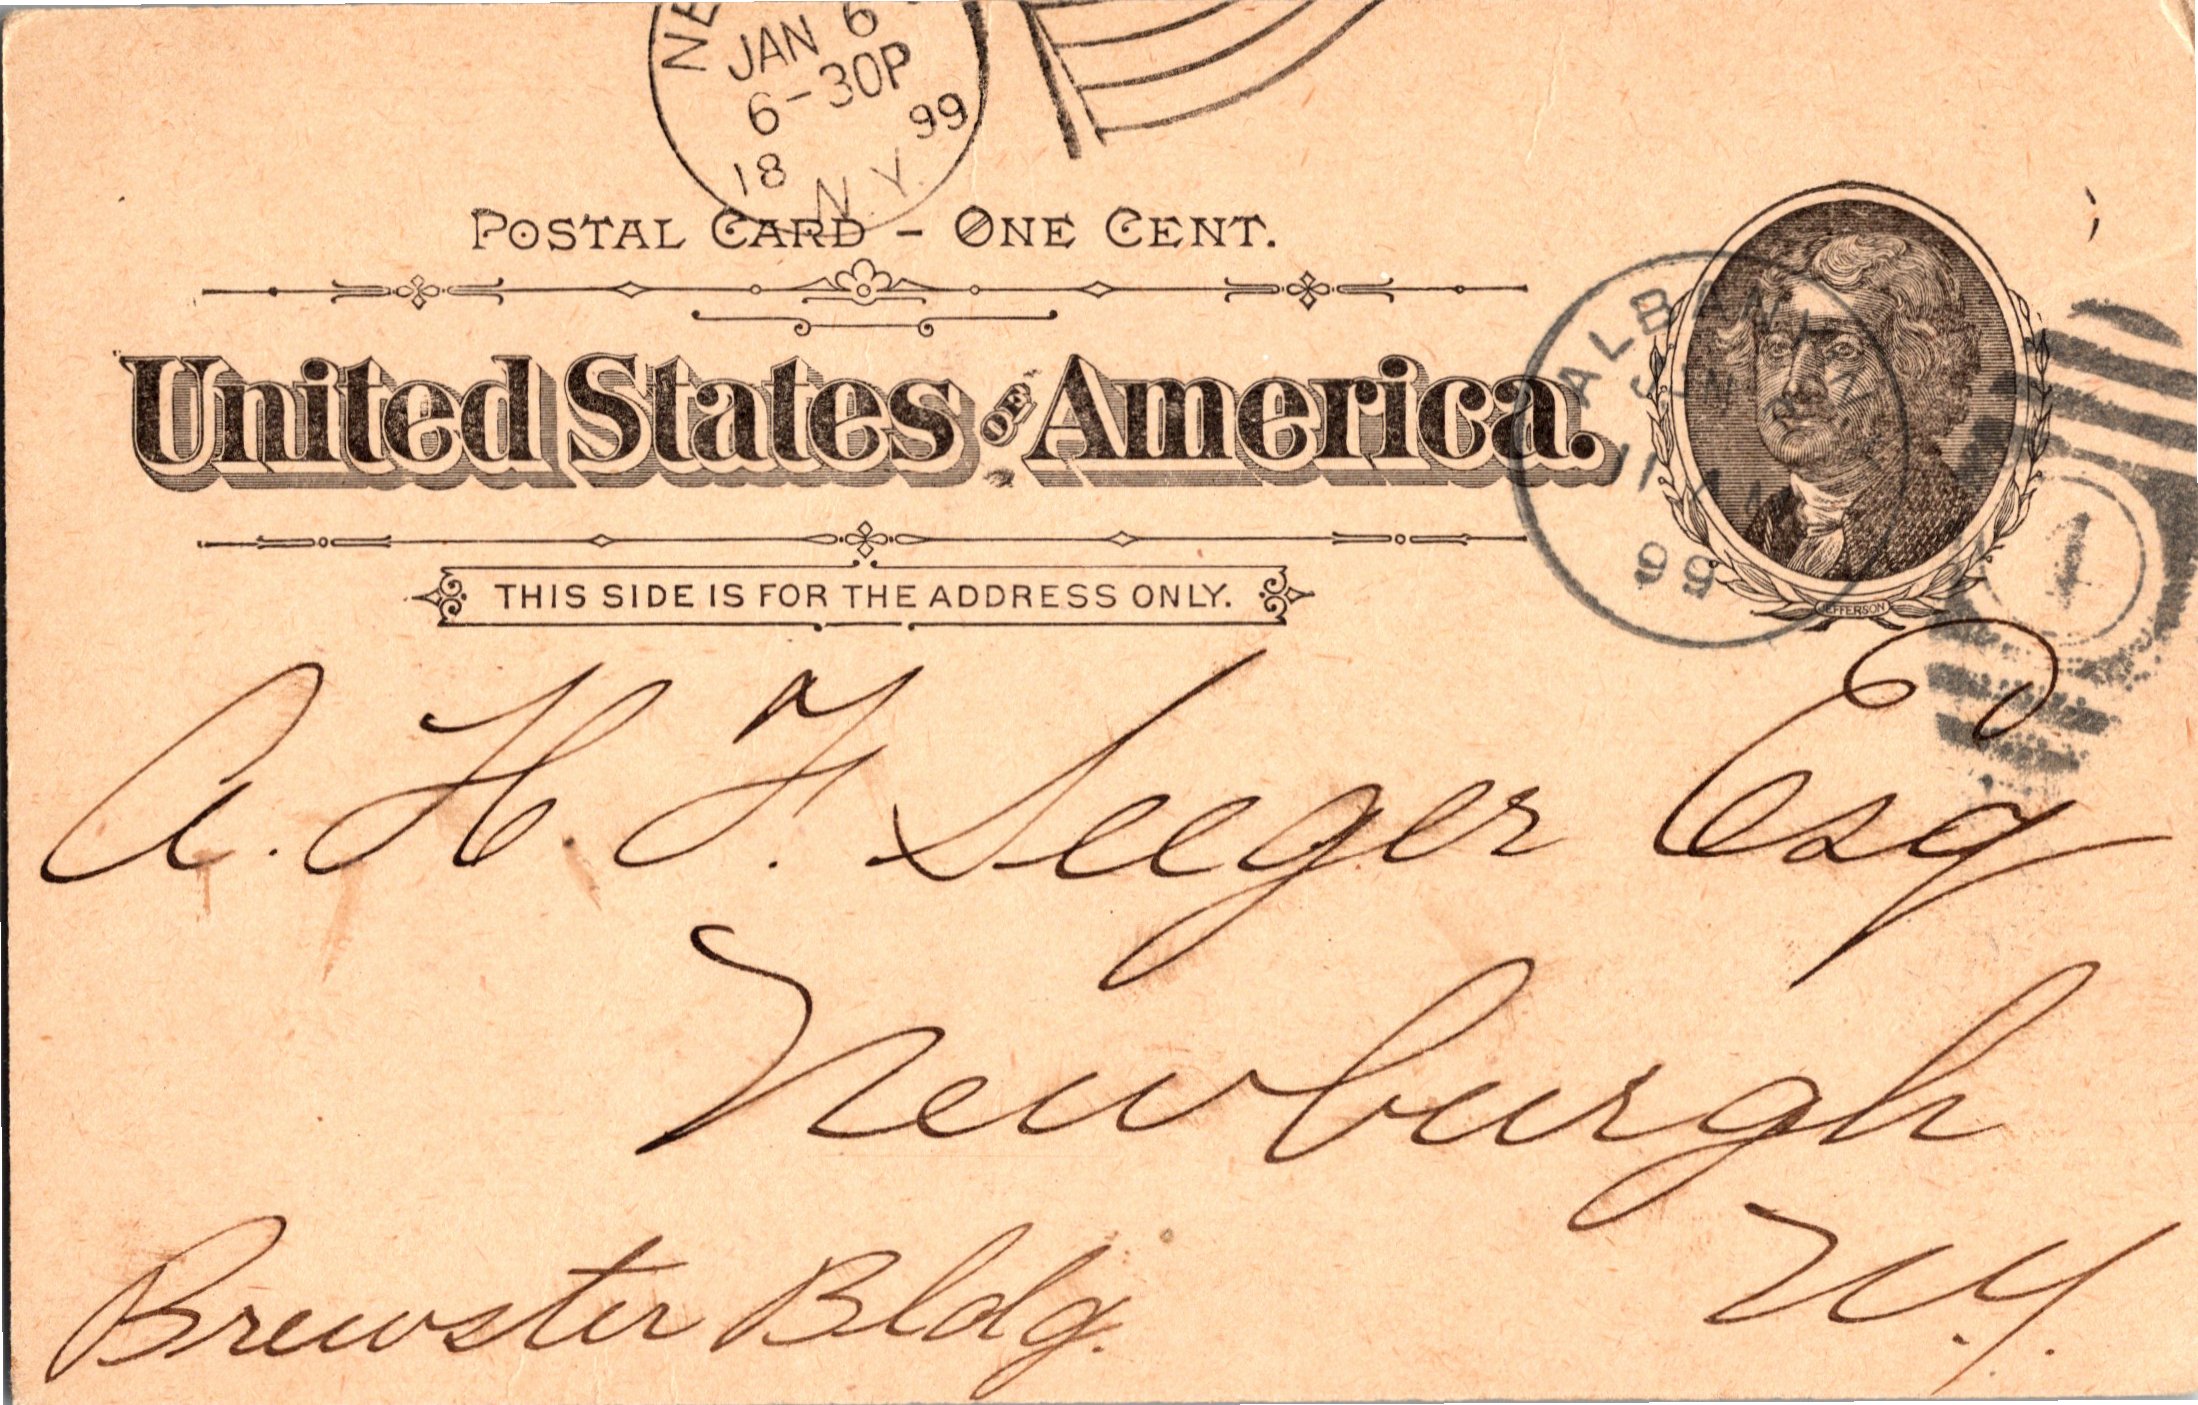 JAN 6
6-30P
18 99
N.Y.
POSTAL CARD - ONE CENT.
United States OF America.
ALBANY, N.Y.
11 AM
99
1
JEFFERSON
THIS SIDE IS FOR THE ADDRESS ONLY.
A. H. F. Seeger Esq
Newburgh
N.Y.
Brewster Bldg.